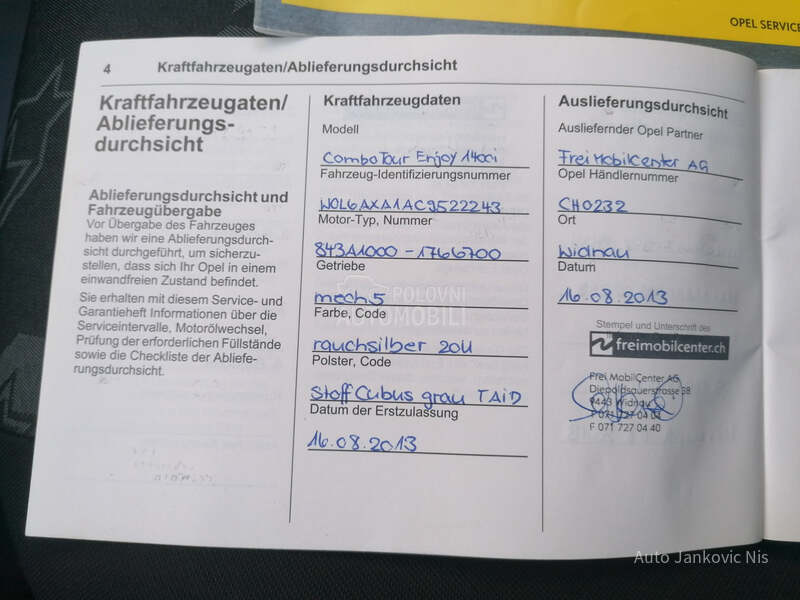 OPEL SERVICE
4 Kraftfahrzeugaten/Ablieferungsdurchsicht
Kraftfahrzeugaten/
Ablieferungs-
durchsicht
Ablieferungsdurchsicht und
Fahrzeugübergabe
Vor Übergabe des Fahrzeuges
haben wir eine Ablieferungdurch-
sicht durchgeführt, um sicherzu-
stellen, dass sich Ihr Opel in einem
einwandfreien Zustand befindet.
Sie erhalten mit diesem Service- und
Garantieheft Informationen über die
Serviceintervalle, Motorölwechsel,
Prüfung der erforderlichen Füllstände
sowie die Checkliste der Abliefe-
rungsdurchsicht.
Kraftfahrzeugdaten
Modell
Combo Tour Enjoy
Fahrzeug-Identifizierungsnummer
W0L6AXA1AC9522243
Motor-Typ, Nummer
843A1000 - 1766700
Getriebe
mech.5
Farbe, Code
rauchsilber 20U
Polster, Code
Stoff Cubus grau TAID
Datum der Erstzulassung
16.08.2013
Auslieferungsdurchsicht
Ausliefernder Opel Partner
Frei Mobilcenter AG
Opel Händlernummer
CH0232
Ort
Widnau
Datum
16.08.2013
Stempel und Unterschrift des
freimobilcenter.ch
Frei MobilCenter AG
Diepoldsauerstrasse 38
9443 Widnau
T 071 727 04 04
F 071 727 04 40
POLOVNI
AUTOMOBILI
Auto Jankovic Nis